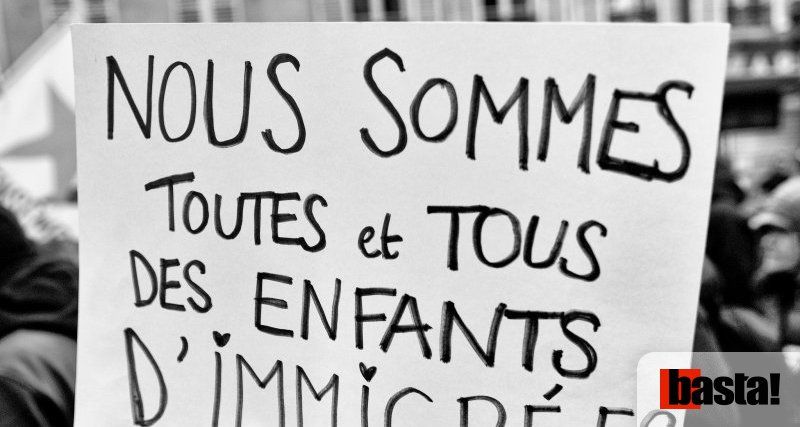 NOUS SOMMES
TOUTES et TOUS
DES ENFANTS
D'iMMiGRÉES
basta!